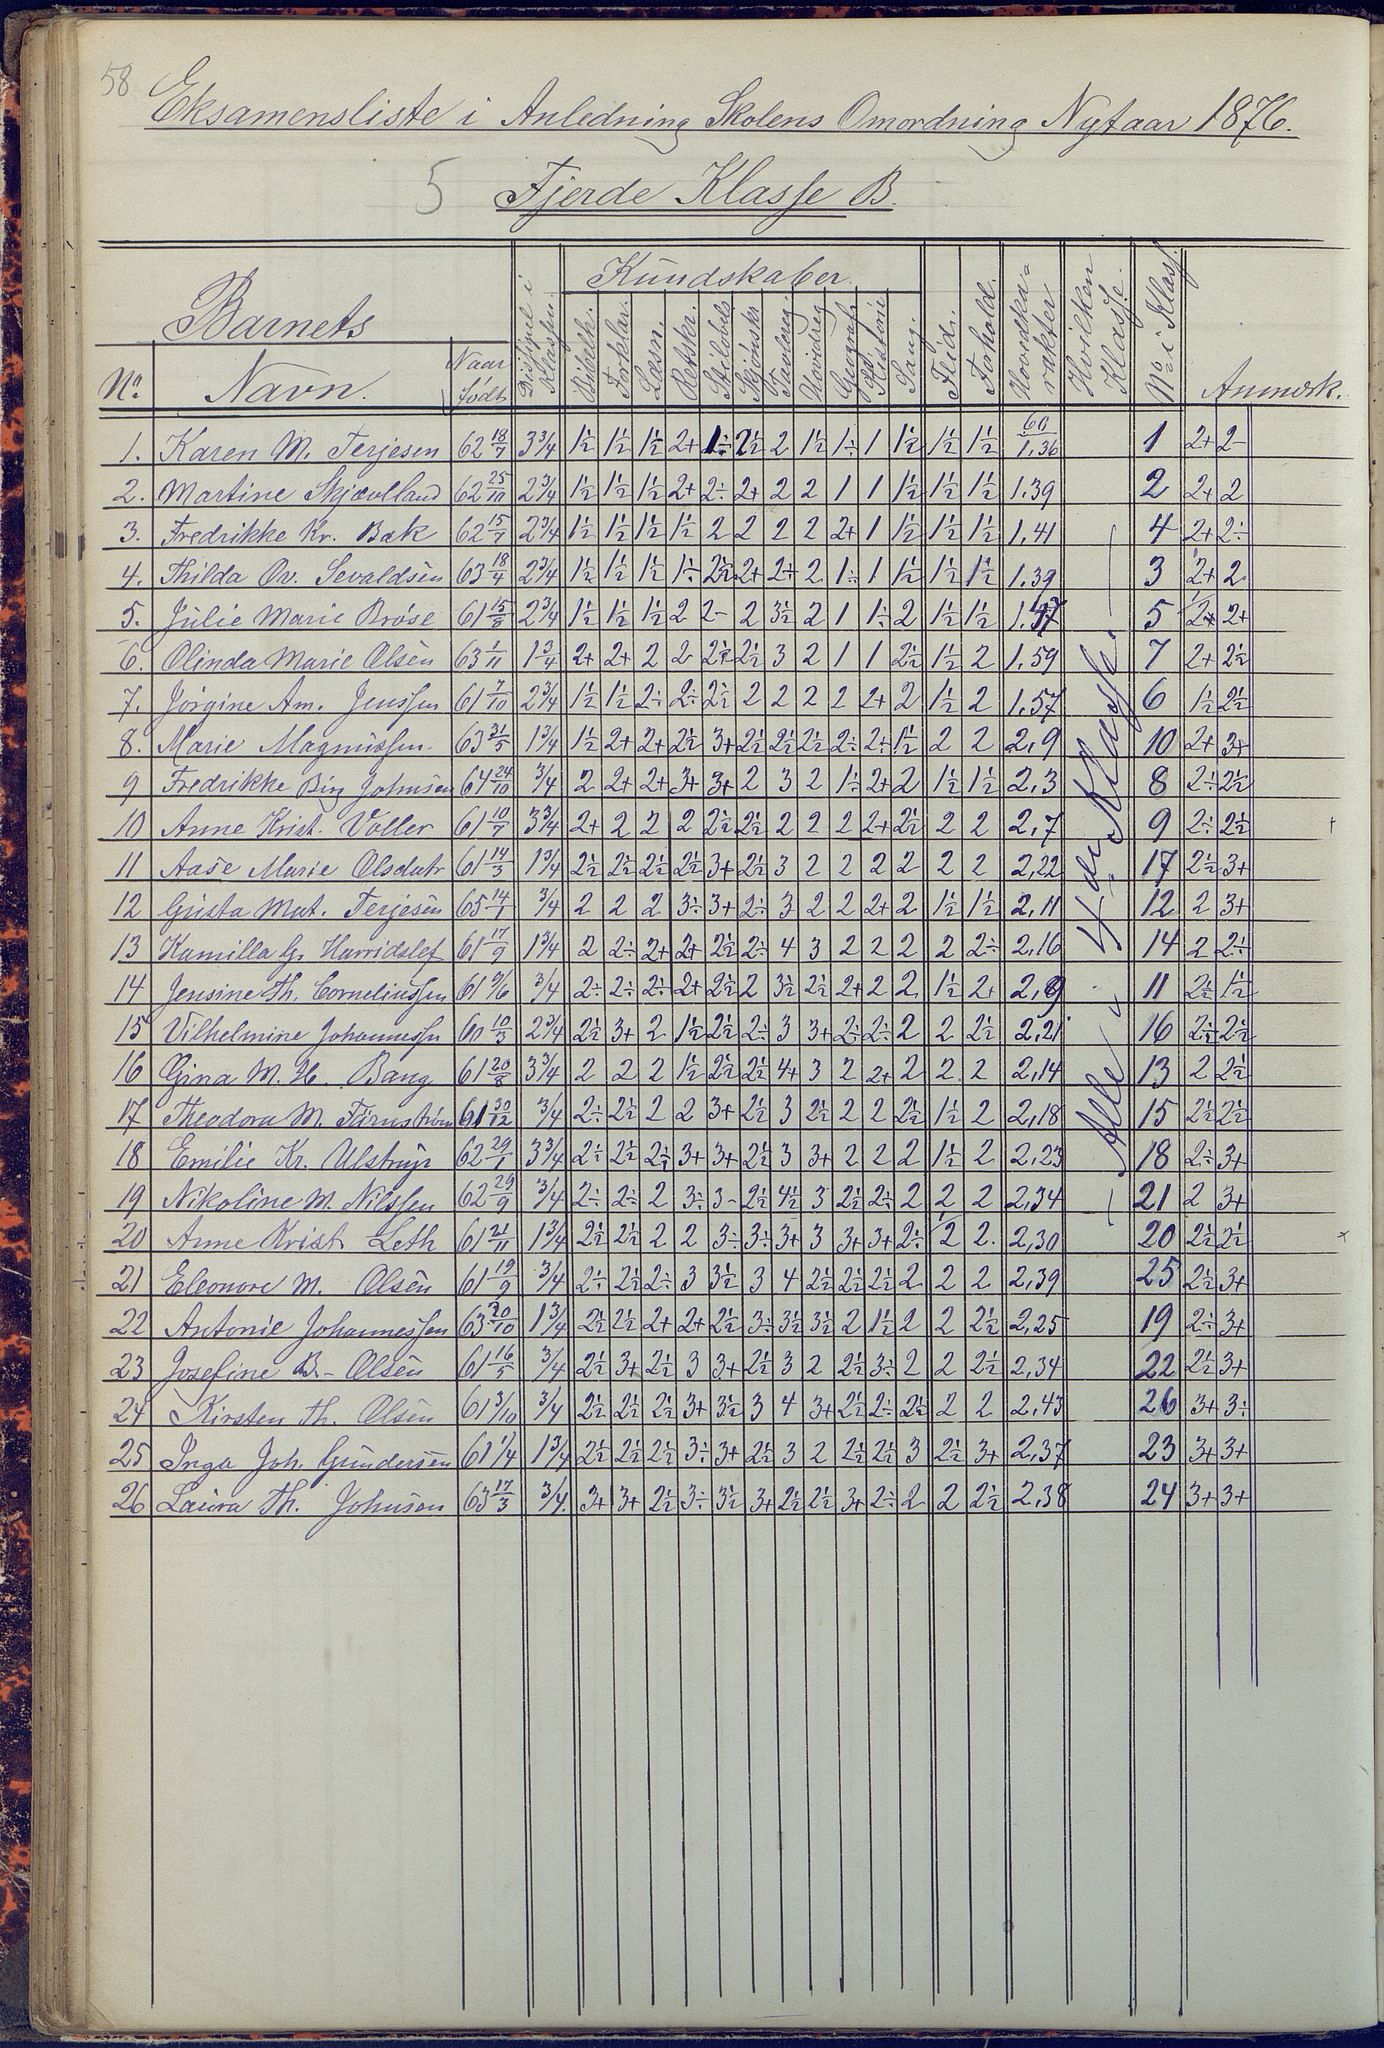 58
Eksamensliste i Anledning Skolens Omordning Nytaar 1876.
5 Fjerde Klasse B.
Barnets
Kundskaber.
No. Navn. Naar født Discipel i Klassen. Bibelh. Forklar. Læsn. Retskr. Skjønskr. Tavlereg. Hovedreg. Geografi Historie Sang. Flid. Forhold. Hovedka=rakter Hvilken Klasse. No i Klass. Anmærk.
1. Karen M. Terjesen 62 18/7 3 3/4 1½ 1½ 1½ 2+ 1÷ 2½ 2 1½ 1÷ 1 1½ 1½ 1½ 60/1,36 1 2+ 2-
2. Martine Skjævlland 62 25/10 2 3/4 1½ 1½ 1½ 2+ 2÷ 2+ 2 2 1 1 1½ 1½ 1½ 1,39 2 2+ 2
3. Fredrikke Kr. Bak 62 15/7 2 3/4 1½ 1½ 1½ 1½ 2 2 2 2 2+ 1 1½ 1½ 1½ 1,41 4 2+ 2÷
4. Thilda Ov. Sevaldsen 63 18/4 2 3/4 1½ 1½ 1½ 1÷ 2½ 2+ 2+ 2 1÷ 1 1½ 1½ 1½ 1,39 3 2+ 2
5. Julie Marie Brøse 61 15/8 2 3/4 1½ 1½ 1½ 2 2- 2 3½ 2 1 1÷ 2 1½ 1½ 1,47 5 2+ 2+
6. Olinda Marie Olsen 63 1/11 1 3/4 2+ 2+ 2 2 2½ 2½ 3 2 1 1 2½ 1½ 2 1,59 7 2+ 2½
7. Jørgine Am. Jenssen 61 7/10 2 3/4 1½ 1½ 2÷ 2÷ 2½ 2 2 2 2 2+ 2 1½ 2 1,57 6 1½ 2½
8. Marie Magnussen 63 31/5 1 3/4 1½ 2+ 2+ 2½ 3+ 2½ 2½ 2½ 2÷ 2÷ 1½ 2 2 2,9 10 2+ 3+
9 Fredrikke Birg Johnsen 64 24/10 3/4 2 2+ 2+ 3+ 3+ 2 3 2 1÷ 2+ 2 1½ 1½ 2,3 8 2÷ 2½
10 Anne Krist. Voller 61 10/7 3 3/4 2+ 2 2 2 2½ 2½ 2 2 2 2+ 2½ 2 2 2,7 9 2÷ 2½
11 Aase Marie Olsdatr 61 14/3 1 3/4 2½ 2½ 2½ 2½ 3+ 2½ 3 2 2 2 2 2 2 2,22 17 2½ 3+
12 Gusta Mat. Terjesen 65 14/1 3/4 2 2 2 3÷ 3+ 2÷ 3 2 2 2+ 2 1½ 1½ 2,11 12 2 3+
13 Kamilla G. Harridslef 61 17/9 1 3/4 2 2÷ 2+ 2+ 2½ 2÷ 4 3 2 2 2 2 2÷ 2,16 14 2 2÷
14 Jensine Th. Corneliussen 61 9/6 3/4 2÷ 2÷ 2÷ 2+ 2½ 2 3½ 2½ 2+ 2 2 1½ 2+ 2,9 11 2½ 1½
15 Vilhelmine Johannessn 60 10/3 2 3/4 2½ 3+ 2 1½ 2½ 2÷ 3 3+ 2÷ 2÷ 2 2 2½ 2,21 16 2½ 2½
16 Gina M. H. Bang 61 20/8 3 3/4 2 2 2 1½ 2½ 2½ 4+ 3 2 2+ 2 2 2 2,14 13 2 2½
17 Theodora M. Tørnstrøm 61 30/12 3/4 2÷ 2½ 2 2 3+ 2½ 3 2½ 2 2 2½ 1½ 2 2,18 15 2½ 2½
18 Emilie Kr. Ulstrup 62 29/1 3 3/4 2½ 2½ 2½ 3+ 3+ 2½ 3 3+ 2 2 2 1½ 2 2,23 18 2÷ 3+
19 Nikoline M. Nilssen 62 29/9 3/4 2÷ 2÷ 2 3÷ 3- 2½ 4½ 3 2½ 2÷ 2 2 2 2,34 21 2 3+
20 Anne Krist. Leth 61 21/11 1 3/4 2½ 2½ 2 2 3÷ 3÷ 3+ 3 3+ 3+ 2÷ 2 2 2,30 20 2½ 2½
21 Eleonore M. Olsen 61 19/9 3/4 2÷ 2½ 2÷ 3 3½ 3 4 2½ 2½ 2½ 2 2 2 2,39 25 2½ 3+
22 Antonie Johannessen 63 20/10 1 3/4 2½ 2½ 2+ 2+ 2½ 3÷ 3½ 3½ 2 1½ 2 2 2½ 2,25 19 2÷ 3+
23 Josefine B. Olsen 61 16/5 3/4 2½ 3+ 2½ 3 3+ 2½ 3 2 2½ 3÷ 2 2 2½ 2,34 22 2½ 3+
24 Kirsten Th. Olsen 61 3/10 3/4 2½ 2½ 2½ 3+ 3½ 3 4 3+ 2½ 2÷ 2½ 2 2 2,43 26 3+ 3÷
25 Inga Joh. Gundersen 61 1/4 1 3/4 2½ 2½ 2½ 3÷ 3+ 2½ 3 2 2½ 2½ 3 2½ 3+ 2,37 23 3+ 3+
26 Laura Th. Johnson 63 17/3 3/4 3+ 3+ 2½ 3÷ 3½ 3+ 2½ 2½ 3+ 2÷ 2 2 2½ 2,38 24 3+ 3+
Alle i 4-de Klasse.